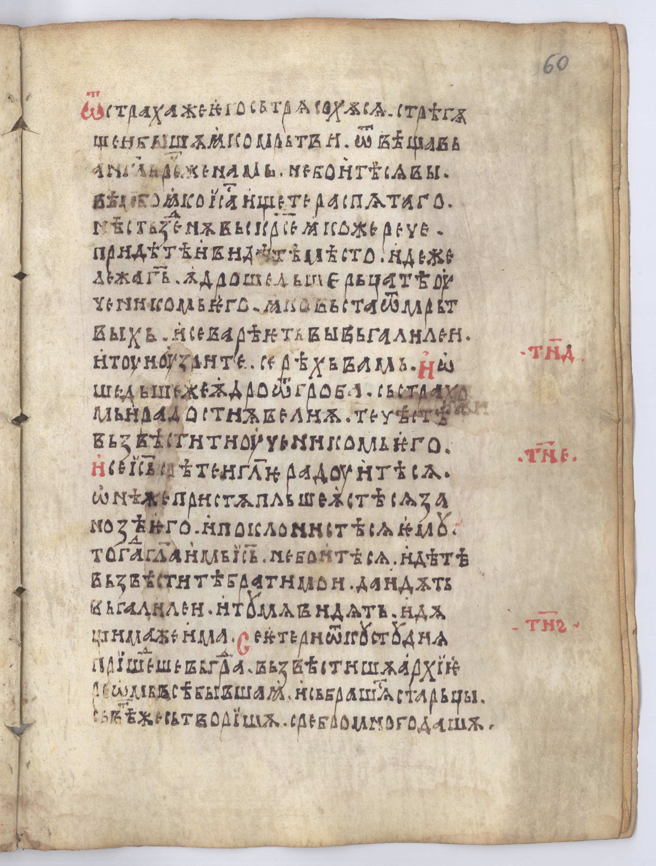 60
ѿ страха же ѥго сътрѧсохѫсѧ . стрѣгѫ
щеи бышѧ ꙗко мрьтви . ѿвѣщавь
ангⷧ҇ъ рⷱ҇е женамь . не боитѣсѧ вы .
вѣмь бо ꙗко іс҃а ищете распѧтаго .
нѣсть зⷣе нѫ въскрⷭ҇е ꙗкоже рече .
придѣтѣ и видѣтѣ мѣсто . идеже
лежа г҃ь . ѫдро шедьше рьцѣте оу
ченикомь ѥго . ꙗко въста ѿ мрьт
выхь . и се варѣѥтъ вы въ галилеи .
и тоу и оузрите . се рѣхъ вамь . и ѡ
шедьше же ѫдро ѿ гроба . съ страхо
мь и радостиѫ велиѫ . течѣстѣ
възвѣстит и оученикомь ѥго .
и се іс҃ъ сърѣте и гл҃ѧ радоуитѣсѧ .
ѡнѣ же пристѫпльше ѩстѣсѧ за
нозѣ ѥго . и поклонистѣсѧ ѥмоу .
тогⷣа гл҃а имь іс҃ъ . не боитесѧ . идѣтѣ
възвѣстите братии мои . да идѫть
въ галилеи . и тоу мѧ видѧть . идѫ
щима же има . се ѥтери ѿ коустодиѧ
пришеⷣше въ граⷣ . възвѣстишѫ архиѥ
реѡмь всѣ бывшаꙗ . и събрашѫсѧ старьцы .
съвѣтⷮ же сътворишѫ . сребро много дашѫ .
т҃н҃д
т҃н҃е .
т҃н҃ѕ